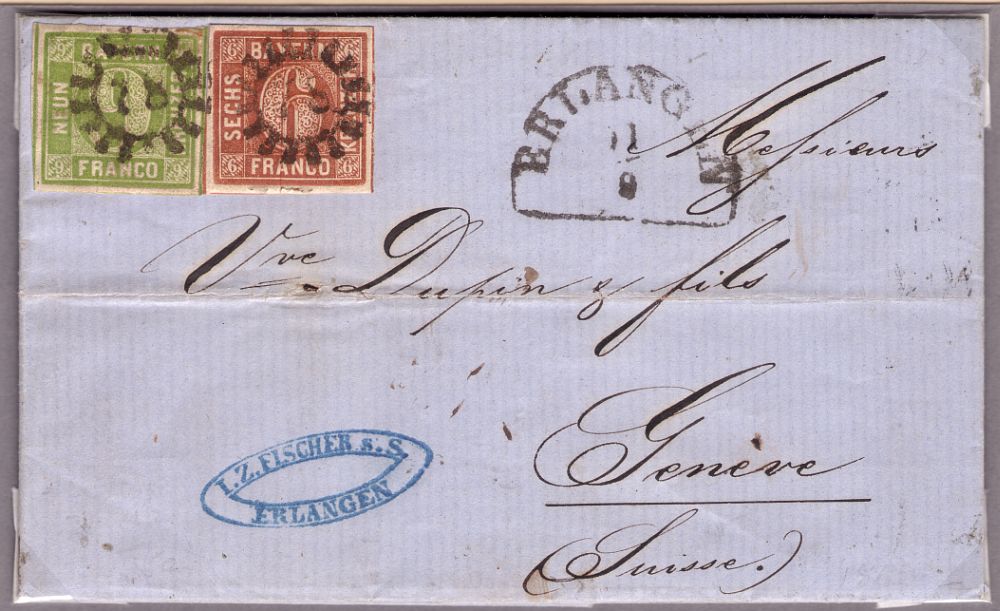 BAYERN
NEUN
FRANCO
9 9 9
BAYERN
6 6
SECHS
KREUZER
6
FRANCO
6 6
ERLANGEN
11
8
Messieurs
Vve Dupin & fils
Genève
(Suisse.)
I.Z. FISCHER s. S.
ERLANGEN